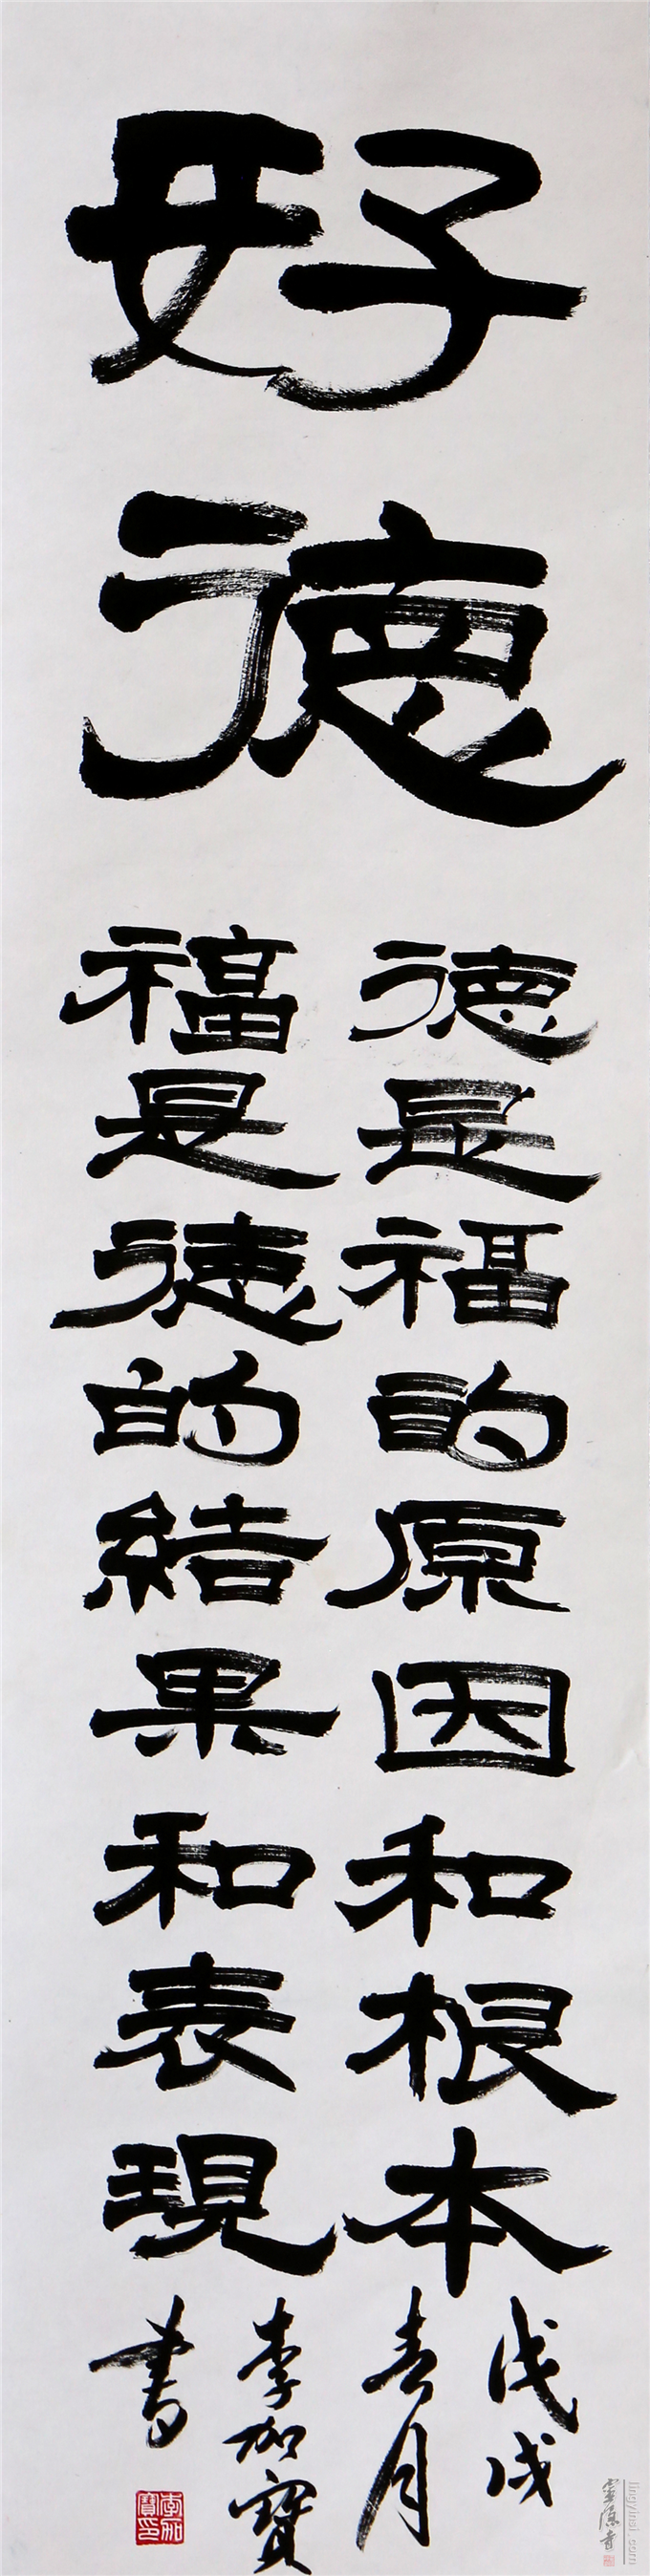 好德
德是福的原因和根本
福是德的結果和表現
戊戌
春月
李加寶
書
李加
寶印
lingyinsi.com